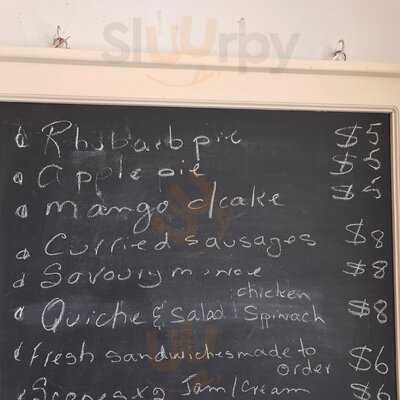 Sluurpy
Rhubarb pie $5
Apple pie $5
mango c/cake $5
Curried sausages $8
Savoury mince $8
Quiche & Salad chicken $8
Spinach
fresh sandwiches made to $6
order
Scones x 2 Jam/cream $6